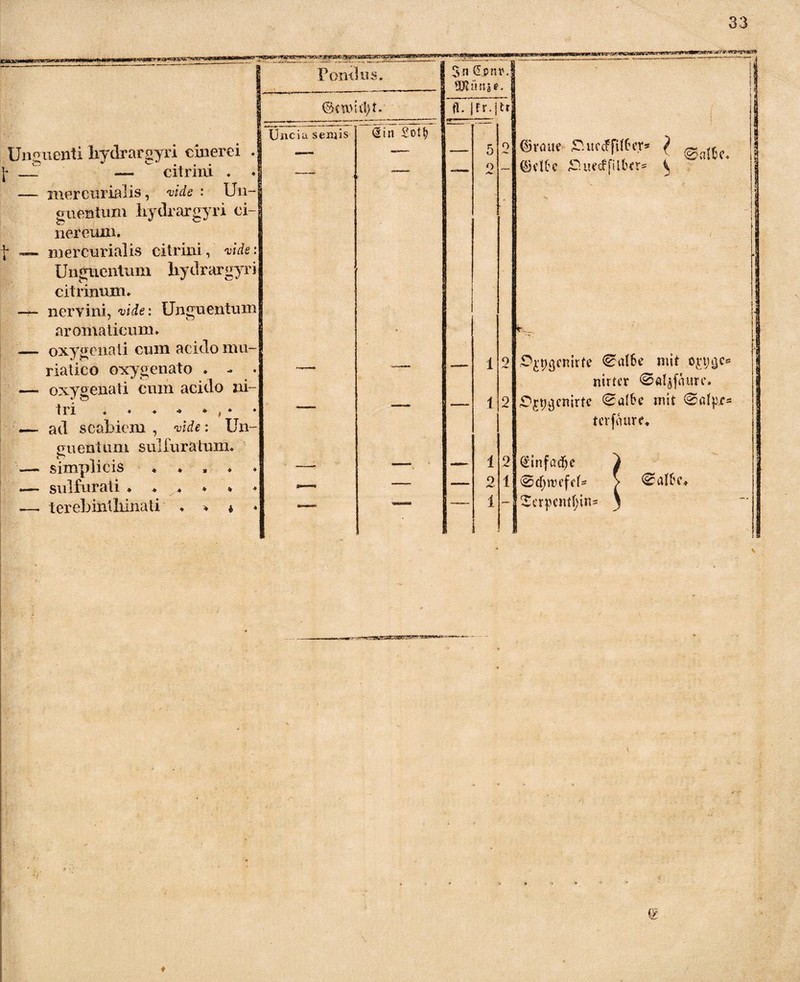 33
Pondus. In Conv.
Münze.
Gewicht. fl. kr. kr
Uncia semis Ein Loth
Unguenti hydrargyri cinerei . — — — 5 2 Graue Quecksilber= } Salbe.
† — — citrini . . — — — 2 — Gelbe Quecksilber=
— mercurialis, vide : Un-
guentum hydrargyri ci-
nereum.
† — mercurialis citrini, vide:
Unguentum hydrargyri
citrinum.
— nervini, vide: Unguentum
aromaticum.
— oxygenati cum acido mu-
riatico oxygenato . . . — — — 1 2 Oxygenirte Salbe mit oxyge=
— oxygenati cum acido ni- nirter Salzsäure.
tri . . . . . . . . — — — 1 2 Oxygenirte Salbe mit Salpe=
— ad scabiem , vide: Un- tersäure.
guentum sulfuratum.
— simplicis . . . . . — — — 1 2 Einfache } Salbe.
— sulfurati . . . . . . — — — 2 1 Schwefel=
— terebinthinati . . . . — — — 1 — Terpenthin=
E